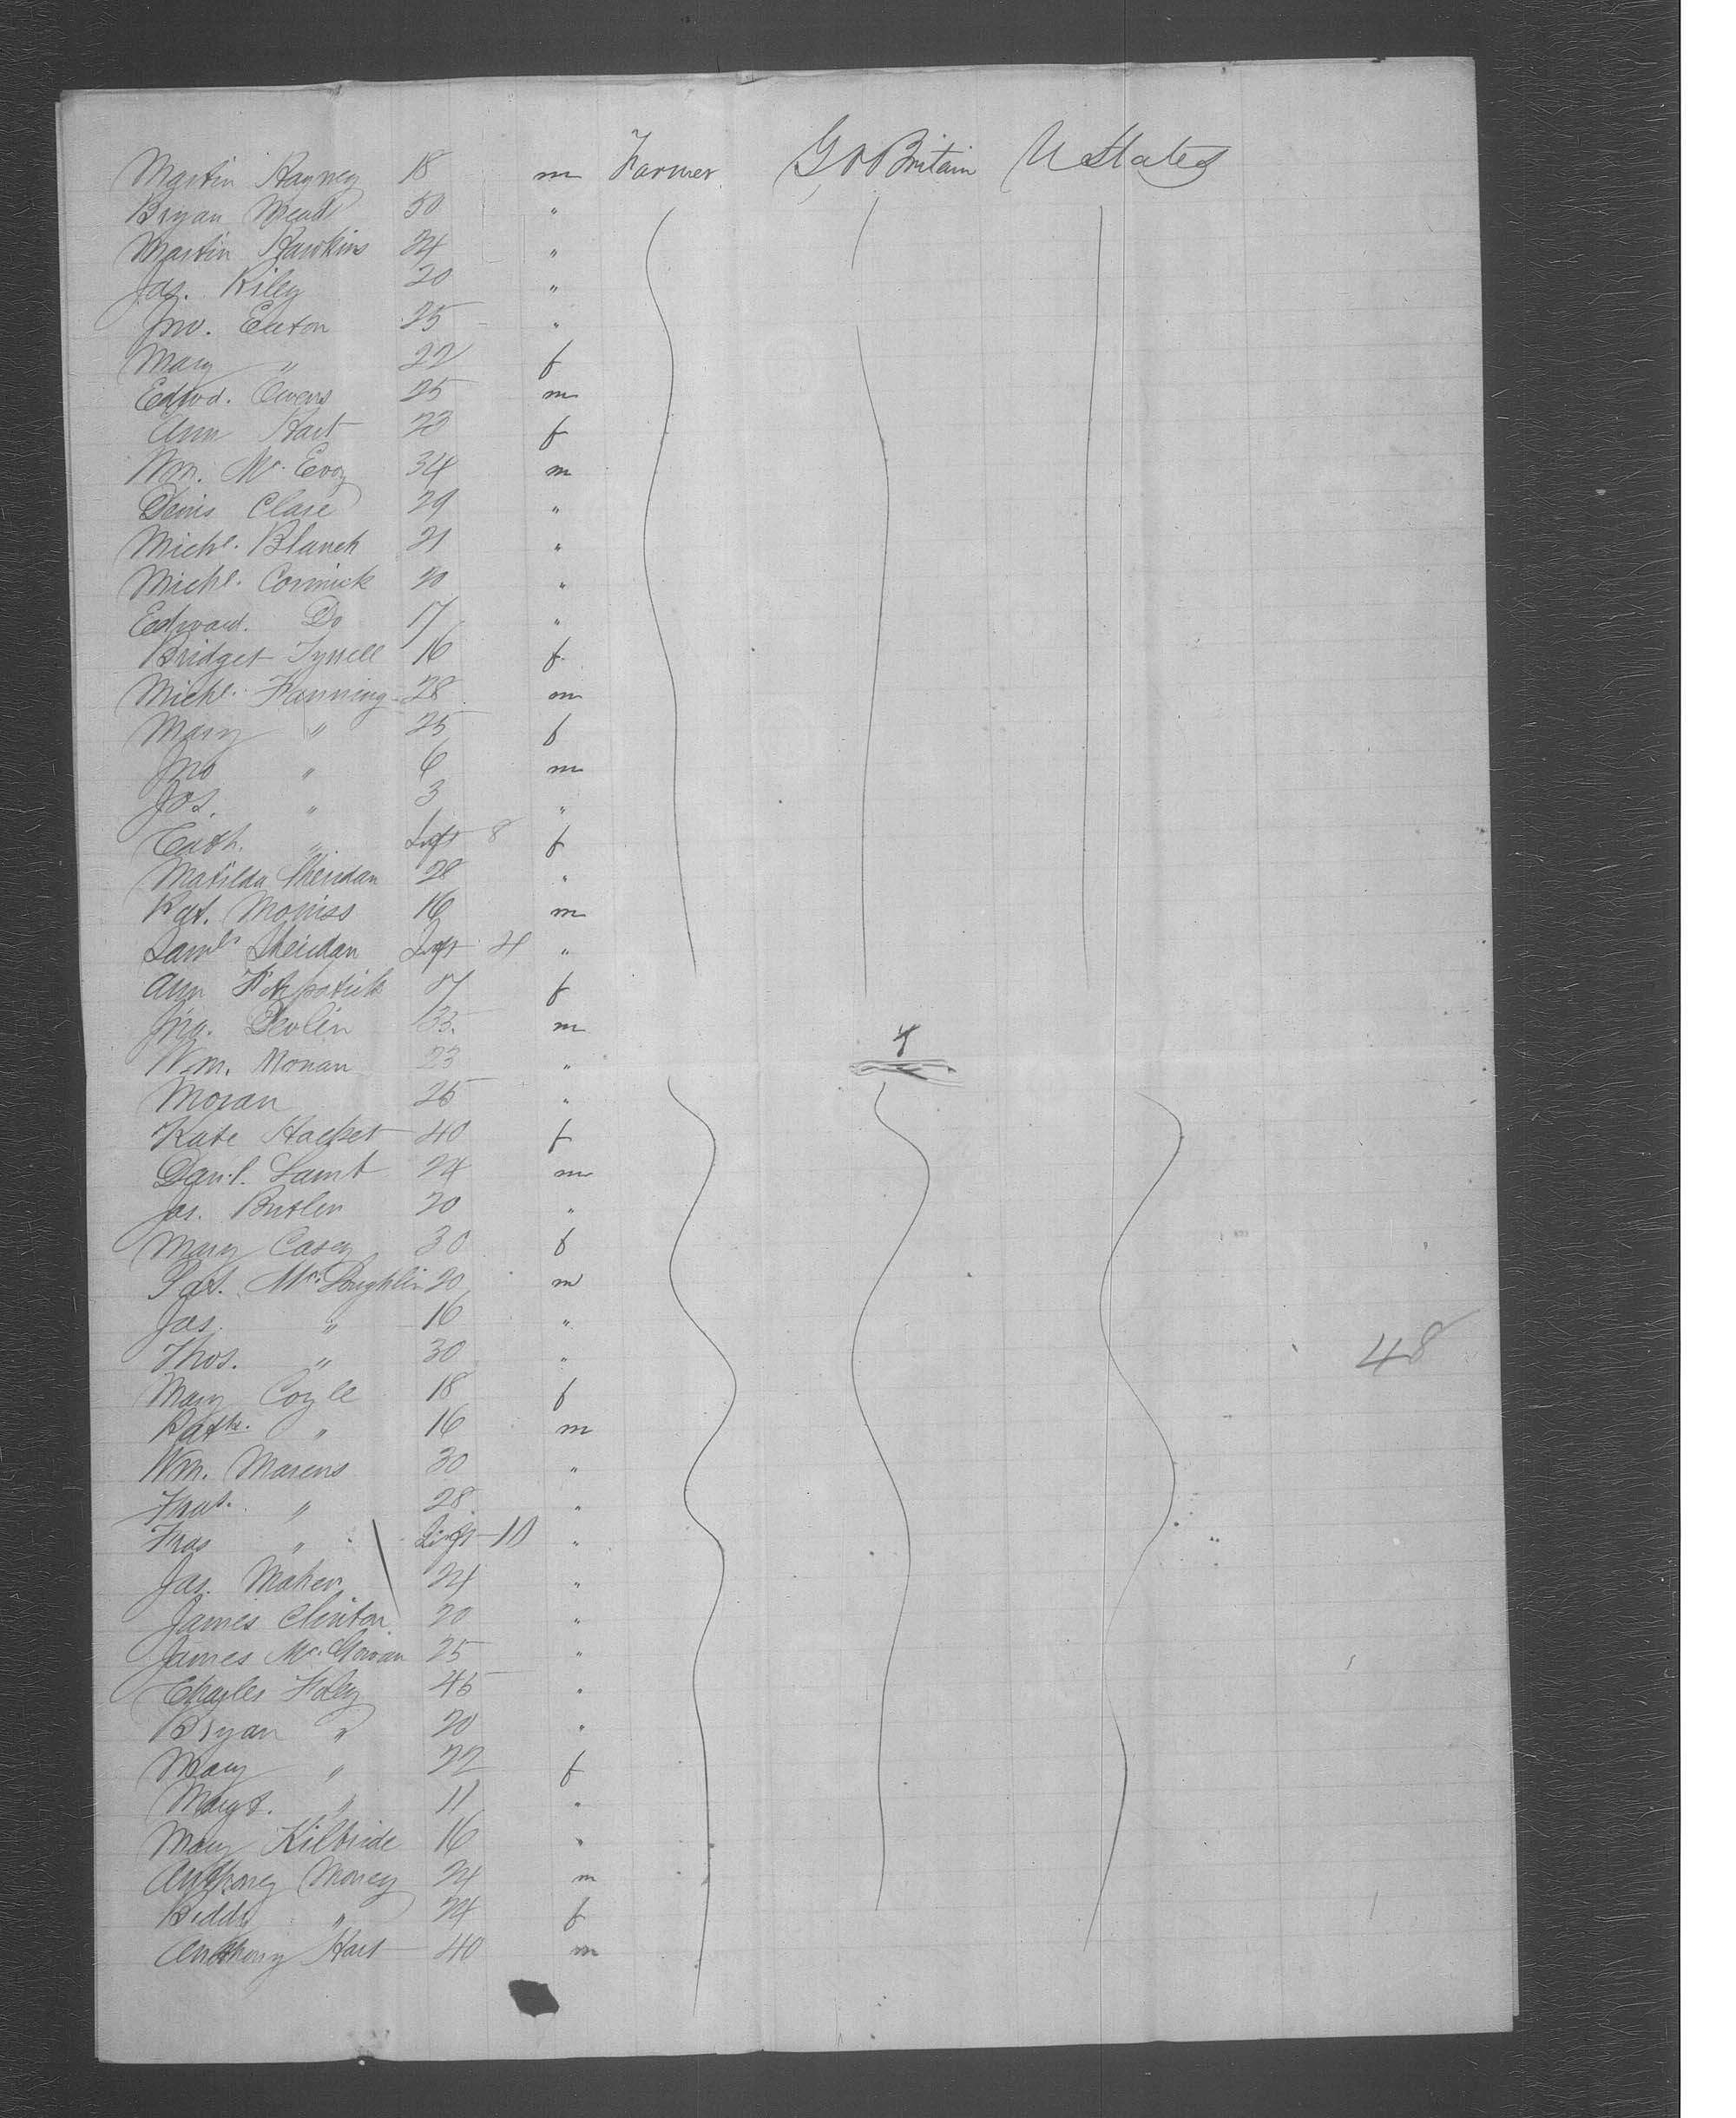 Martin 18 m Farmer Gt Britain U States
Bryan Mead 50 "
Martin Hawkins 24 "
Jas. Riley 20 "
Jno. Eaton 25 "
Mary " 22 f
Edwd. Owens 25 m
Ann Hart 23 f
Wm. Mc. Evoy 34 m
Denis Clare 29 "
Michl. Blanch 21 "
Michl. Cormick 20 "
Edward. Do 17 "
Bridget Tyrrell 16 f
Michl. Fanning 28 m
Mary " 25 f
Jno " 6 m
Jos. " 3 "
Cath. " Inft 8 f
Matilda Sheridan 28 "
Pat. 16 m
Saml. Sheridan Inft 4 "
Ann Fitzpatrick f
Jno. Devlin 33. m
Wm. Monan 23 "
Moran 25 "
Kate Hacket 40 f
Danl. Lamb 24 m
Jas. Butler 20 "
Mary Casey 30 f
Pat. Mc. Loughlin 20 m
Jas. " 16 "
Thos. " 30 "
48
Mary Coyle 18 f
" 16 m
Wm. 30 "
" 28 "
Fras " Inft 10 "
Jas. Maher 24 "
James Clinton 20 "
James Mc. Gowan 25 "
Charles 45 "
Bryan " 20 "
Mary " 22 f
Margt. " 11 "
Mary Kilbride 16 "
Anthony 24 m
" 24 f
Anthony Hart 40 m